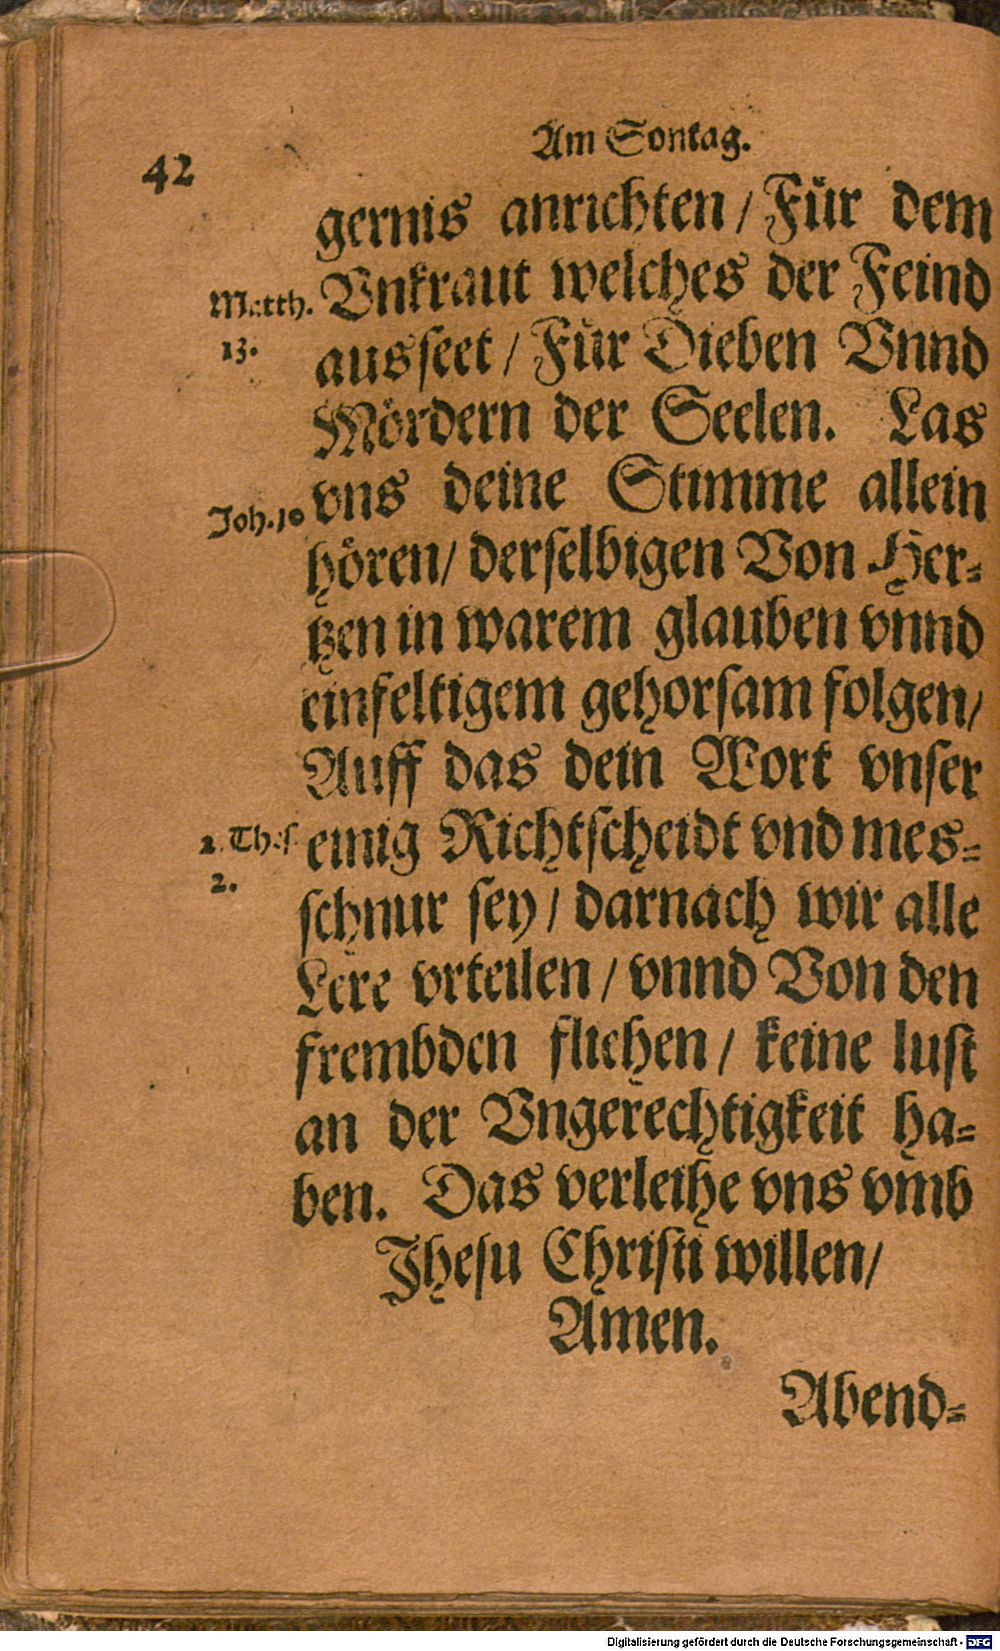 42
Am Sontag.
gernis anrichten / Für dem
Vnkraut welches der Feind
Matth.
13.
ausseet / Für Dieben Vnnd
Mördern der Seelen. Las
vns deine Stimme allein
Joh. 10
hören / derselbigen Von Her⸗
tzen in warem glauben vnnd
einfeltigem gehorsam folgen /
Auff das dein Wort vnser
einig Richtscheidt vnd mes⸗
2. Thes
2.
schnur sey / darnach wir alle
Lere vrteilen / vnnd Von den
frembden fliehen / keine lust
an der Vngerechtigkeit ha⸗
ben. Das verleihe vns vmb
Jhesu Christi willen /
Amen.
Abend⸗
Digitalisierung gefördert durch die Deutsche Forschungsgemeinschaft - DFG